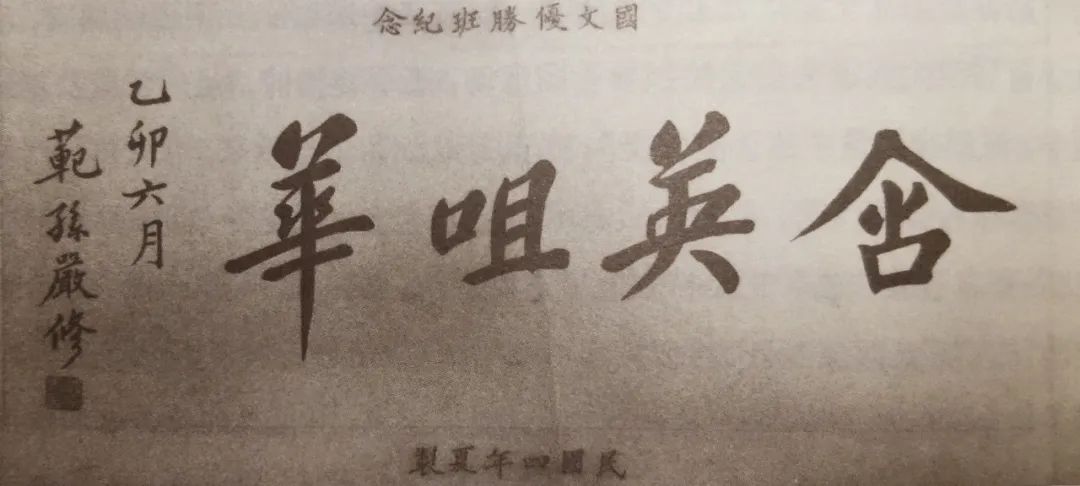 國文優勝班紀念
含英咀華
乙卯六月
範孫嚴修
民國四年夏製